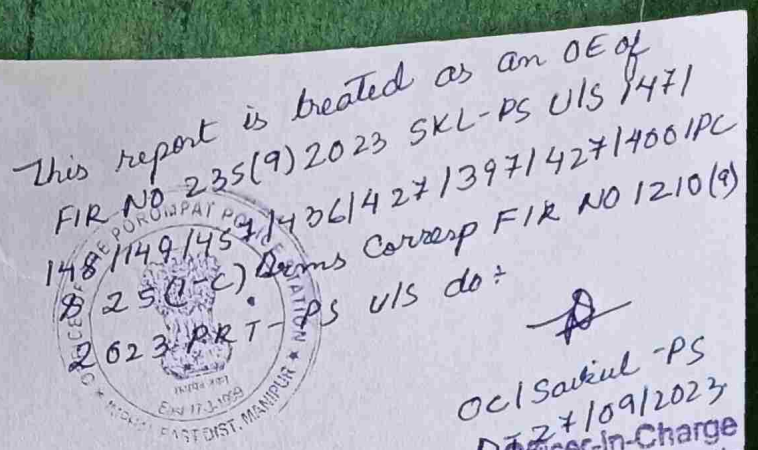 This report is treated as an OE of
FIR NO 235(9)2023 SKL-PS U/S 147/
148/149/457/436/427/397/427/400 IPC
& 25(1-C) Arms Corresp FIR NO 1210(9)
2023 PRT-PS U/S do:
OC/Saikul-PS
DT 27/09/2023
Officer-in-Charge
POROMPAT POLICE STATION
Estd 17-3-1999
EAST DIST. MANIPUR